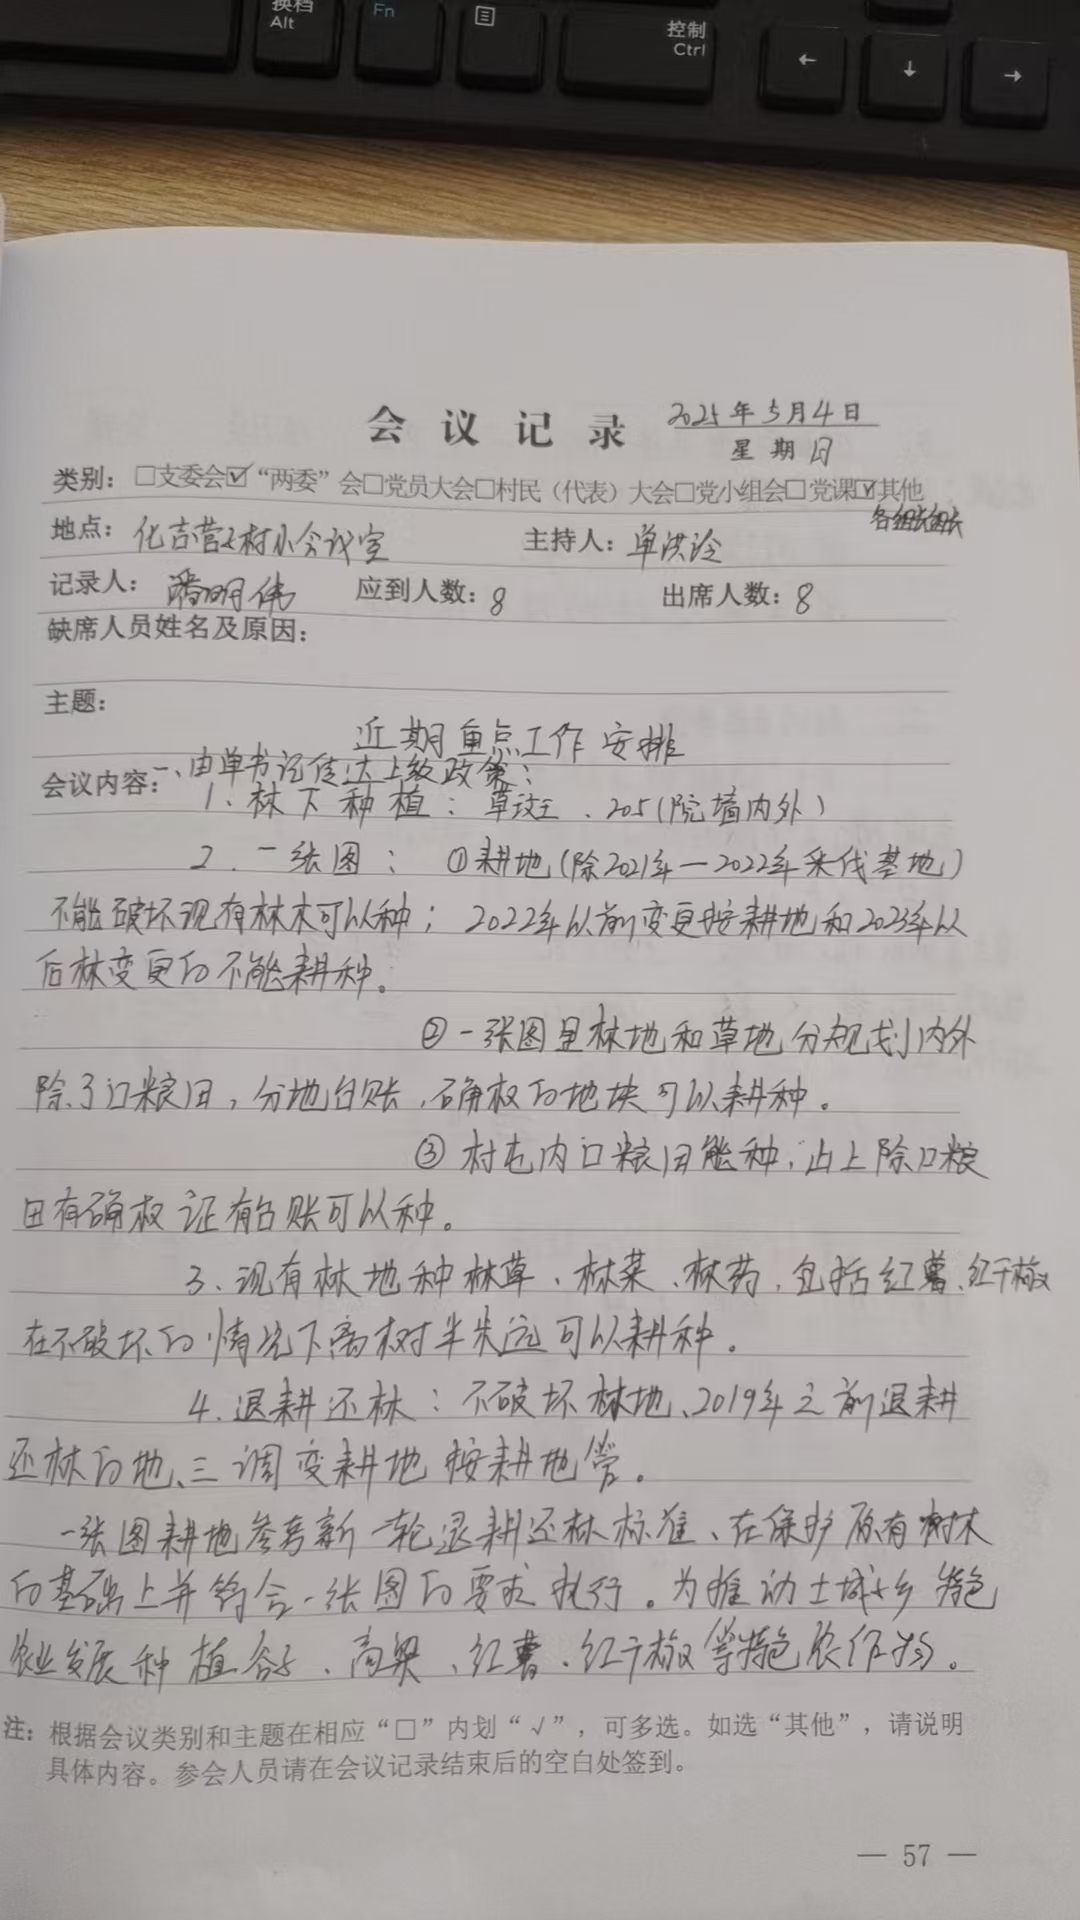 换档
Alt
Fn
控制
Ctrl
←
↓
→
会议记录 2025年5月4日
星期日
类别：□支委会☑“两委”会□党员大会□村民（代表）大会□党小组会□党课☑其他
各组长组长
地点：化吉营子村小会议室 主持人：单洪
记录人：潘明伟 应到人数：8 出席人数：8
缺席人员姓名及原因：
主题：
近期重点工作安排
会议内容：一、由单书记传达上级政策：
1、林下种植：草、205（院墙内外）
2、一张图：①耕地（除2021年—2022年采伐基地）
不能破坏现有林木可以种；2022年以前变更按耕地和2023年以
后林变更的不能耕种。
②一张图里林地和草地分规划内外
除了口粮田，分地台账，确权的地块可以耕种。
③村屯内口粮田能种，山上除口粮
田有确权证有台账可以种。
3、现有林地种林草、林菜、林药，包括红薯、红干椒
在不破坏的情况下离树半米远可以耕种。
4、退耕还林：不破坏林地、2019年之前退耕
还林的地、三调变耕地按耕地管。
一张图耕地参考新一轮退耕还林标准、在保护原有树木
的基础上并符合一张图的要求执行。为推动土城子乡特色
农业发展种植谷子、高粱、红薯、红干椒等特色农作物。
注：根据会议类别和主题在相应“□”内划“√”，可多选。如选“其他”，请说明
具体内容。参会人员请在会议记录结束后的空白处签到。
— 57 —